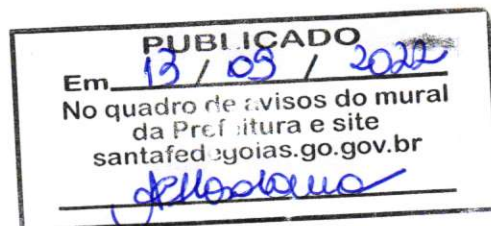 PUBLICADO
Em 13 / 09 / 2022
No quadro de avisos do mural
da Prefeitura e site
santafedegoias.go.gov.br